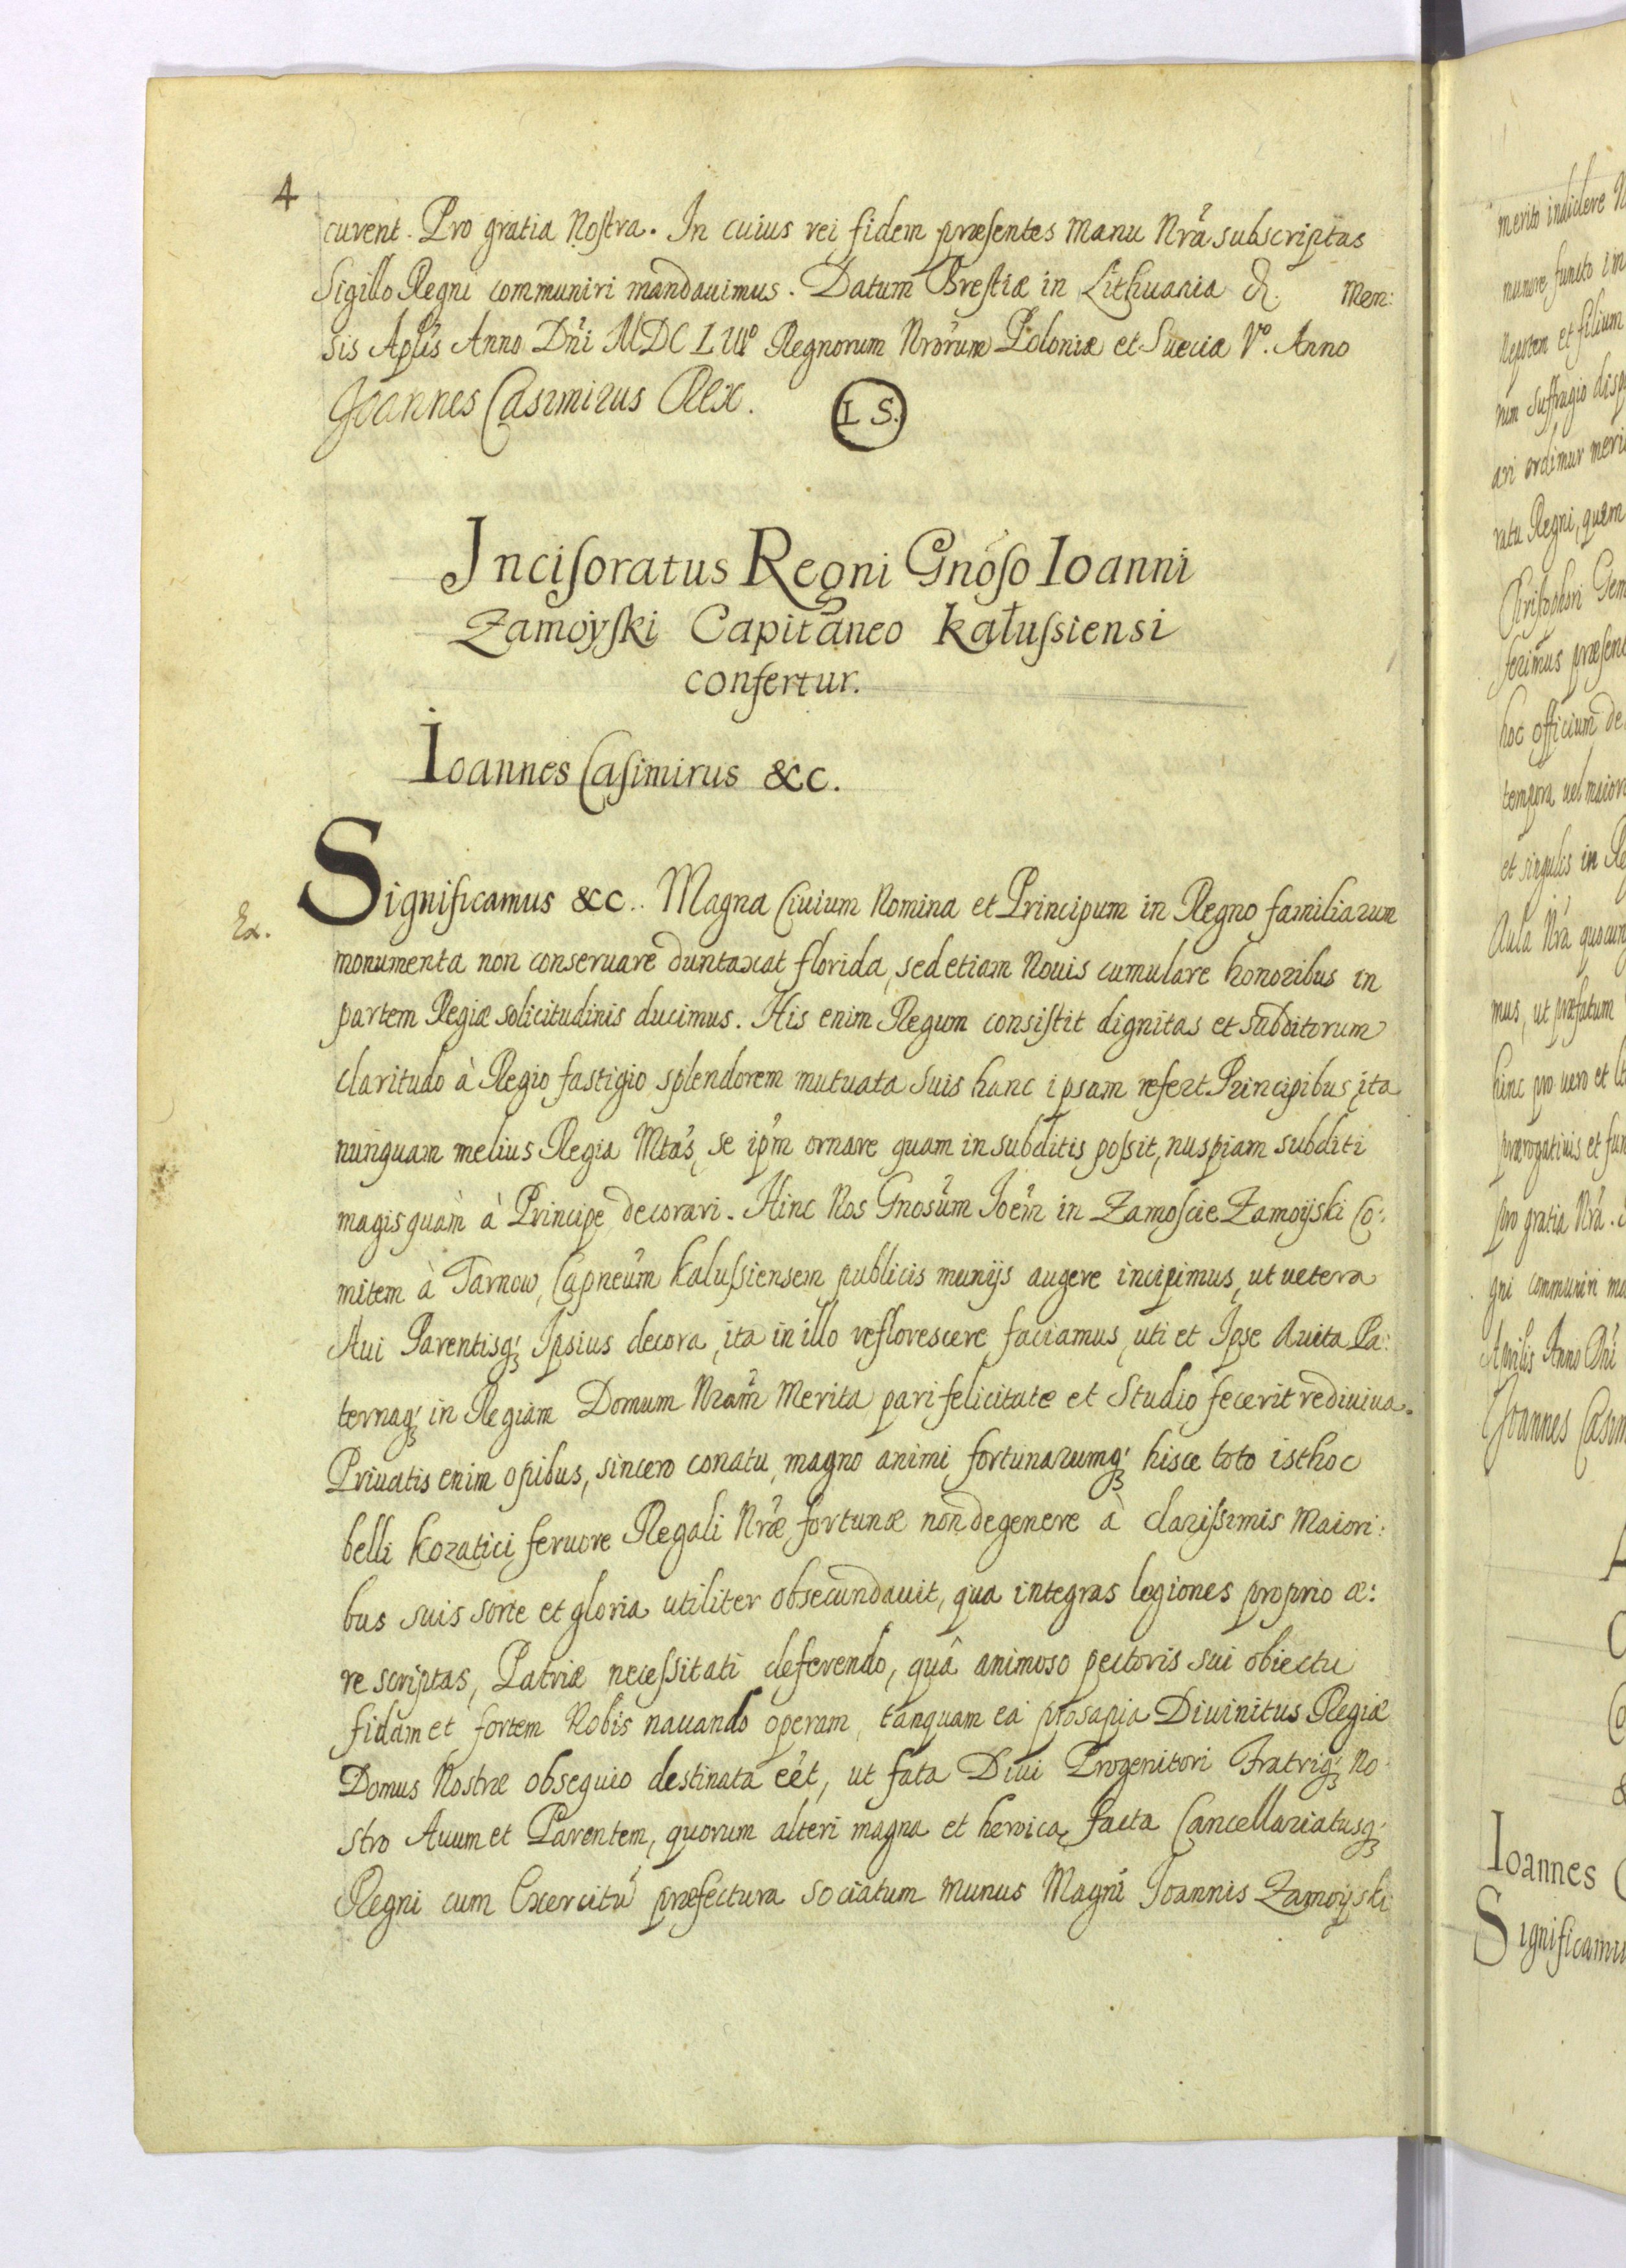 4
curent. Pro gratia Nostra. In cuius rei fidem præsentes Manu Nrã subscriptas
Sigillo Regni communiri mandauimus. Datum Brestiæ in Lithuania d. Men:
sis Aplis Anno Dni MDCLIIIº Regnorum Nrorum Poloniæ et Sueciæ Vº. Anno
Joannes Casimirus Rex. L S.
Incisoratus Regni Gnoso Ioanni
Zamoyski Capitaneo Kałussiensi
confertur.
Ioannes Casimirus &c.
Ex.
Significamus &c.. Magna Ciuium Nomina et Principum in Regno familiarum
monumenta non conseruare duntaxat florida, sed etiam Nouis cumulare honoribus in
partem Regiæ solicitudinis ducimus. His enim Regum consistit dignitas et Subditorum
claritudo à Regio fastigio splendorem mutuata Suis hanc ipsam refert Principibus, ita
nunquam melius Regia Mtas, se ipm ornare quam in subditis possit, nuspiam subditi
magis quàm à Principe decorari. Hinc Nos Gnosum Joem in Zamoscie Zamoyski Co:
mitem à Tarnow, Capneum Kalussiensem publicis munijs augere incipimus, ut uetera
Aui Parentisq; Ipsius decora, ita in illo reflorescere faciamus, uti et Ipse Auita Pa:
ternaq; in Regiam Domum Nram Merita pari felicitate et Studio fecerit rediuiua.
Priuatis enim opibus, sincero conatu, magno animi fortunarumq; hisce toto isthoc
belli Kozatici feruore Regali Nræ fortunæ non degenere à clarissimis Maiori:
bus suis sorte et gloria utiliter obsecundauit, qua integras legiones proprio æ:
re scriptas, Patriæ necessitati deferendo, quâ animoso pectoris sui obiectu
fidam et fortem Nobis nauando operam, tanquam ea prosapia Diuinitus Regiæ
Domus Nostræ obsequio destinata eet, ut fata Diui Progenitori Fratriq; No
stro Auum et Parentem, quorum alteri magna et heroica facta Cancellariatusq;
Regni cum Exercitu præfectura sociatum munus Magni Joannis Zamoyski